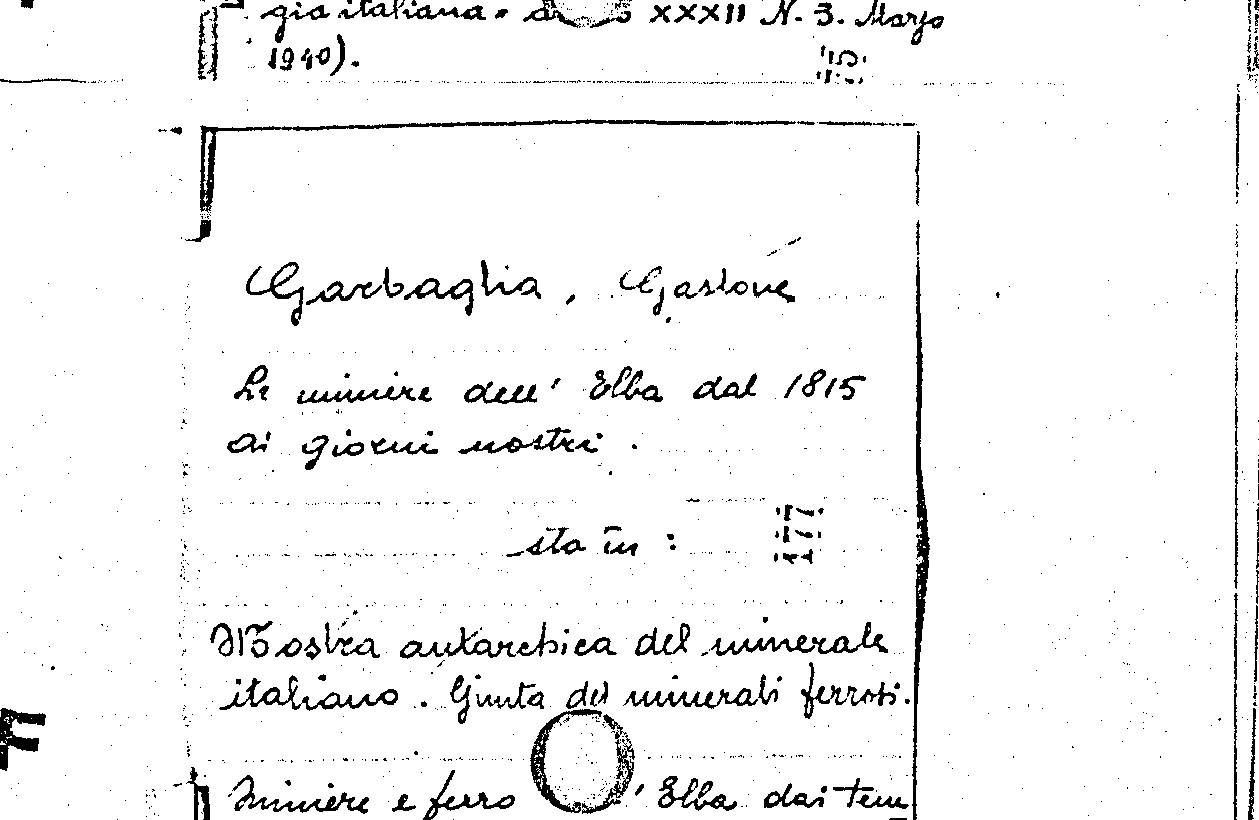 gia italiana" a XXXII N. 3. Marzo
1940).
75
Garbaglia, Gastone
Le miniere dell' Elba dal 1815
ai giorni nostri.
sta in:
177
Mostra autarchica del minerale
italiano. Giunta dei minerali ferrosi.
Miniere e ferro ' Elba dai tem
F